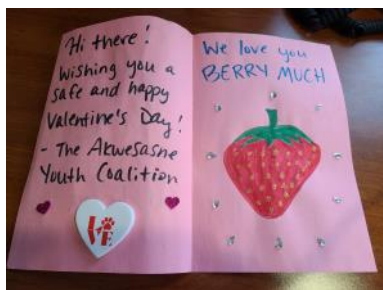 Hi there!
Wishing you a
safe and happy
Valentine's Day!
- The Akwesasne
Youth Coalition
LOVE
We love you
BERRY MUCH